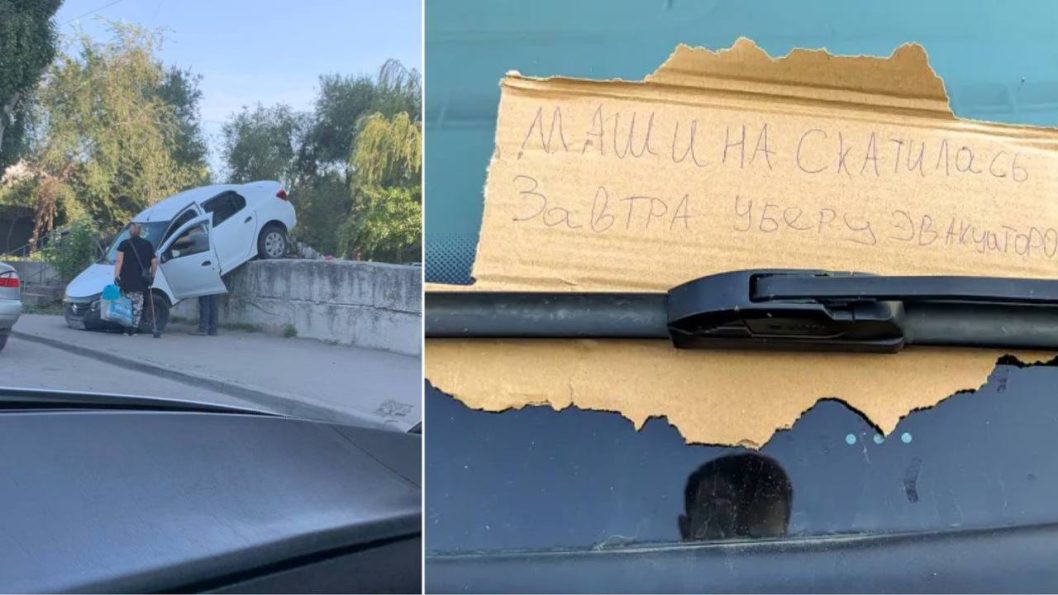 МАШИНА СКАТИЛАСЬ
ЗАВТРА УБЕРУ ЭВАКУАТОРО